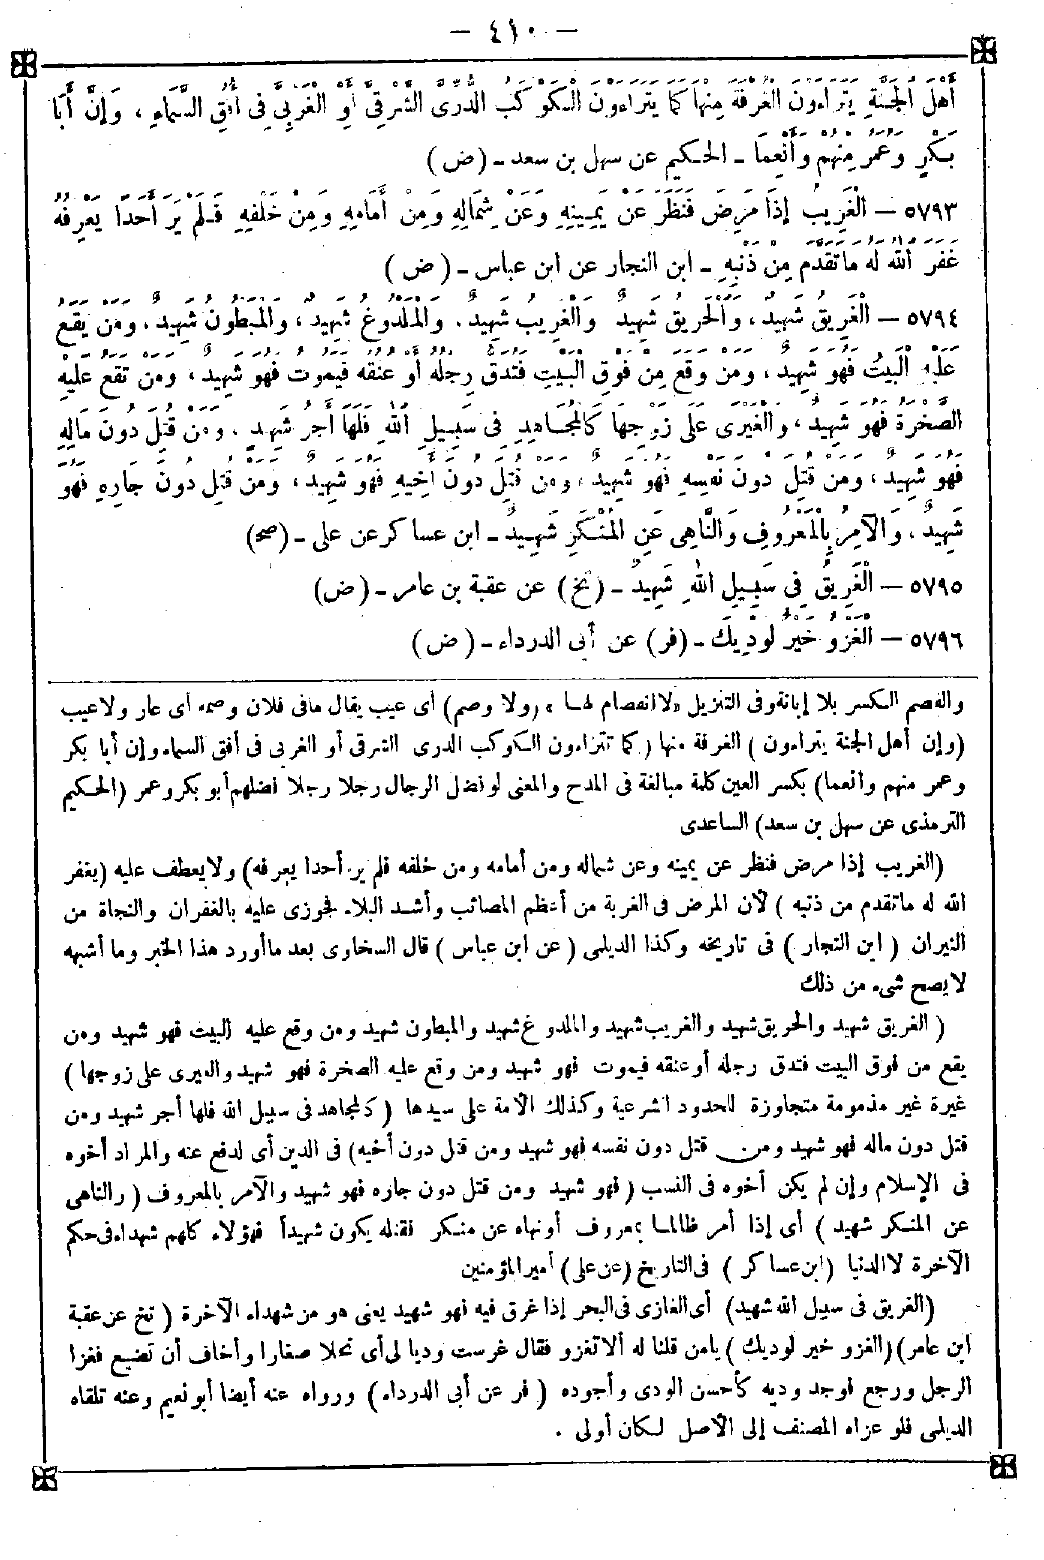 — ٤١٠ —
أَهْلَ الْجَنَّةِ يَتَرَاءَوْنَ الْغُرْفَةَ مِنْهَا كَمَا يَتَرَاءَوْنَ الْكَوْكَبَ الدُّرِّيَّ الشَّرْقِيَّ أَوِ الْغَرْبِيَّ فِي أُفُقِ السَّمَاءِ ، وَإِنَّ أَبَا
بَكْرٍ وَعُمَرَ مِنْهُمْ وَأَنْعِمَا - الحكيم عن سهل بن سعد - (ض)
٥٧٩٣ — الْغَرِيبُ إِذَا مَرِضَ فَنَظَرَ عَنْ يَمِينِهِ وَعَنْ شِمَالِهِ وَمِنْ أَمَامِهِ وَمِنْ خَلْفِهِ فَلَمْ يَرَ أَحَدًا يَعْرِفُهُ
غَفَرَ اللهُ لَهُ مَاتَقَدَّمَ مِنْ ذَنْبِهِ - ابن النجار عن ابن عباس - ( ض )
٥٧٩٤ — الْغَرِيقُ شَهِيدٌ ، وَالْحَرِيقُ شَهِيدٌ وَالْغَرِيبُ شَهِيدٌ ، وَالْمَلْدُوغُ شَهِيدٌ ، وَالْمَبْطُونُ شَهِيدٌ ، وَمَنْ يَقَعُ
عَلَيْهِ الْبَيْتُ فَهُوَ شَهِيدٌ ، وَمَنْ وَقَعَ مِنْ فَوْقِ الْبَيْتِ فَتَدَقُّ رِجْلُهُ أَوْ عُنُقُهُ فَيَمُوتُ فَهُوَ شَهِيدٌ ، وَمَنْ تَقَعُ عَلَيْهِ
الصَّخْرَةُ فَهُوَ شَهِيدٌ ، وَالْغَيْرَى عَلَى زَوْجِهَا كَالْمُجَاهِدِ فِي سَبِيلِ اللهِ فَلَهَا أَجْرُ شَهِيدٍ ، وَمَنْ قُتِلَ دُونَ مَالِهِ
فَهُوَ شَهِيدٌ ، وَمَنْ قُتِلَ دُونَ نَفْسِهِ فَهُوَ شَهِيدٌ ، وَمَنْ قُتِلَ دُونَ أَخِيهِ فَهُوَ شَهِيدٌ ، وَمَنْ قُتِلَ دُونَ جَارِهِ فَهُوَ
شَهِيدٌ ، وَالْآمِرُ بِالْمَعْرُوفِ وَالنَّاهِي عَنِ الْمُنْكَرِ شَهِيدٌ - ابن عساكر عن على - (صح)
٥٧٩٥ — الْغَرِيقُ فِي سَبِيلِ اللهِ شَهِيدٌ - (تخ) عن عقبة بن عامر - (ض)
٥٧٩٦ — الْغَزْوُ خَيْرٌ لِوَدِيِّكَ - (فر) عن أبى الدرداء - (ض)
والفصم الكسر بلا إبانة وفى التنزيل «لاانفصام لها» (ولا وصم) أى عيب يقال مافى فلان وصمه أى عار ولا عيب
(وإن أهل الجنة يتراءون) الغرفة منها (كما تتراءون الكوكب الدرى الشرقى أو الغربى فى أفق السماء وإن أبا بكر
وعمر منهم وأنعما) بكسر العين كلمة مبالغة فى المدح والمعنى لو فضل الرجال رجلا رجلا أفضلهم أبو بكر وعمر (الحكيم
الترمذى عن سهل بن سعد) الساعدى
(الغريب إذا مرض فنظر عن يمينه وعن شماله ومن أمامه ومن خلفه فلم ير أحدا يعرفه) ولا يعطف عليه (يغفر
الله له ماتقدم من ذنبه) لأن المرض فى الغربة من أعظم المصائب وأشد البلاء فجوزى عليه بالغفران والنجاة من
النيران (ابن النجار) فى تاريخه وكذا الديلمى (عن ابن عباس) قال السخاوى بعد ماأورد هذا الخبر وما أشبهه
لايصح شىء من ذلك
(الغريق شهيد والحريق شهيد والغريب شهيد والملدوغ شهيد والمبطون شهيد ومن وقع عليه البيت فهو شهيد ومن
يقع من فوق البيت فتدق رجله أو عنقه فيموت فهو شهيد ومن وقع عليه الصخرة فهو شهيد والغيرى على زوجها)
غيرة غير مذمومة متجاوزة للحدود الشرعية وكذلك الأمة على سيدها (كالمجاهد فى سبيل الله فلها أجر شهيد ومن
قتل دون ماله فهو شهيد ومن قتل دون نفسه فهو شهيد ومن قتل دون أخيه) فى الدين أى لدفع عنه والمراد أخوه
فى الإسلام وإن لم يكن أخوه فى النسب (فهو شهيد ومن قتل دون جاره فهو شهيد والآمر بالمعروف (والناهى
عن المنكر شهيد) أى إذا أمر ظالما بمعروف أونهاه عن منكر فقتله يكون شهيداً فهؤلاء كلهم شهداء فى حكم
الآخرة لاالدنيا (ابن عساكر) فى التاريخ (عن على) أمير المؤمنين
(الغريق فى سبيل الله شهيد) أى الغازى فى البحر إذا غرق فيه فهو شهيد يعنى هو من شهداء الآخرة (تخ عن عقبة
ابن عامر) (الغزو خير لوديك) يامن قلنا له ألا تغزو فقال غرست وديا لى أى نخلا صغارا وأخاف أن تضيع فغزا
الرجل ورجع فوجد وديه كأحسن الودى وأجوده (فر عن أبى الدرداء) ورواه عنه أيضا أبو نعيم وعنه تلقاه
الديلمى فلو عزاه المصنف إلى الأصل لكان أولى .